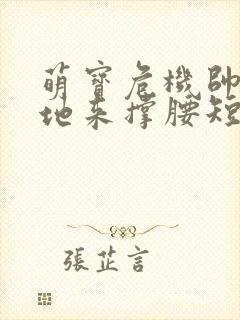 萌寶危機帥
地來撐腰短
張芷言